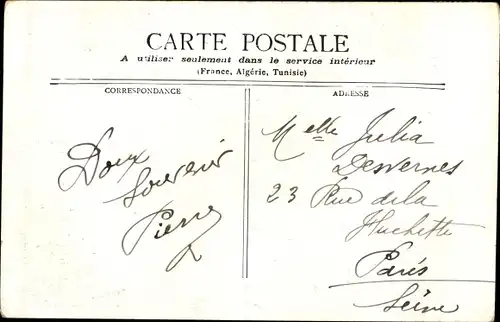 CARTE POSTALE
A utiliser seulement dans le service intérieur
(France, Algérie, Tunisie)
CORRESPONDANCE
Doux
Souvenir
Pierre
ADRESSE
Melle Julia
Desvernes
23 Rue de la
Huchette
Paris
Seine